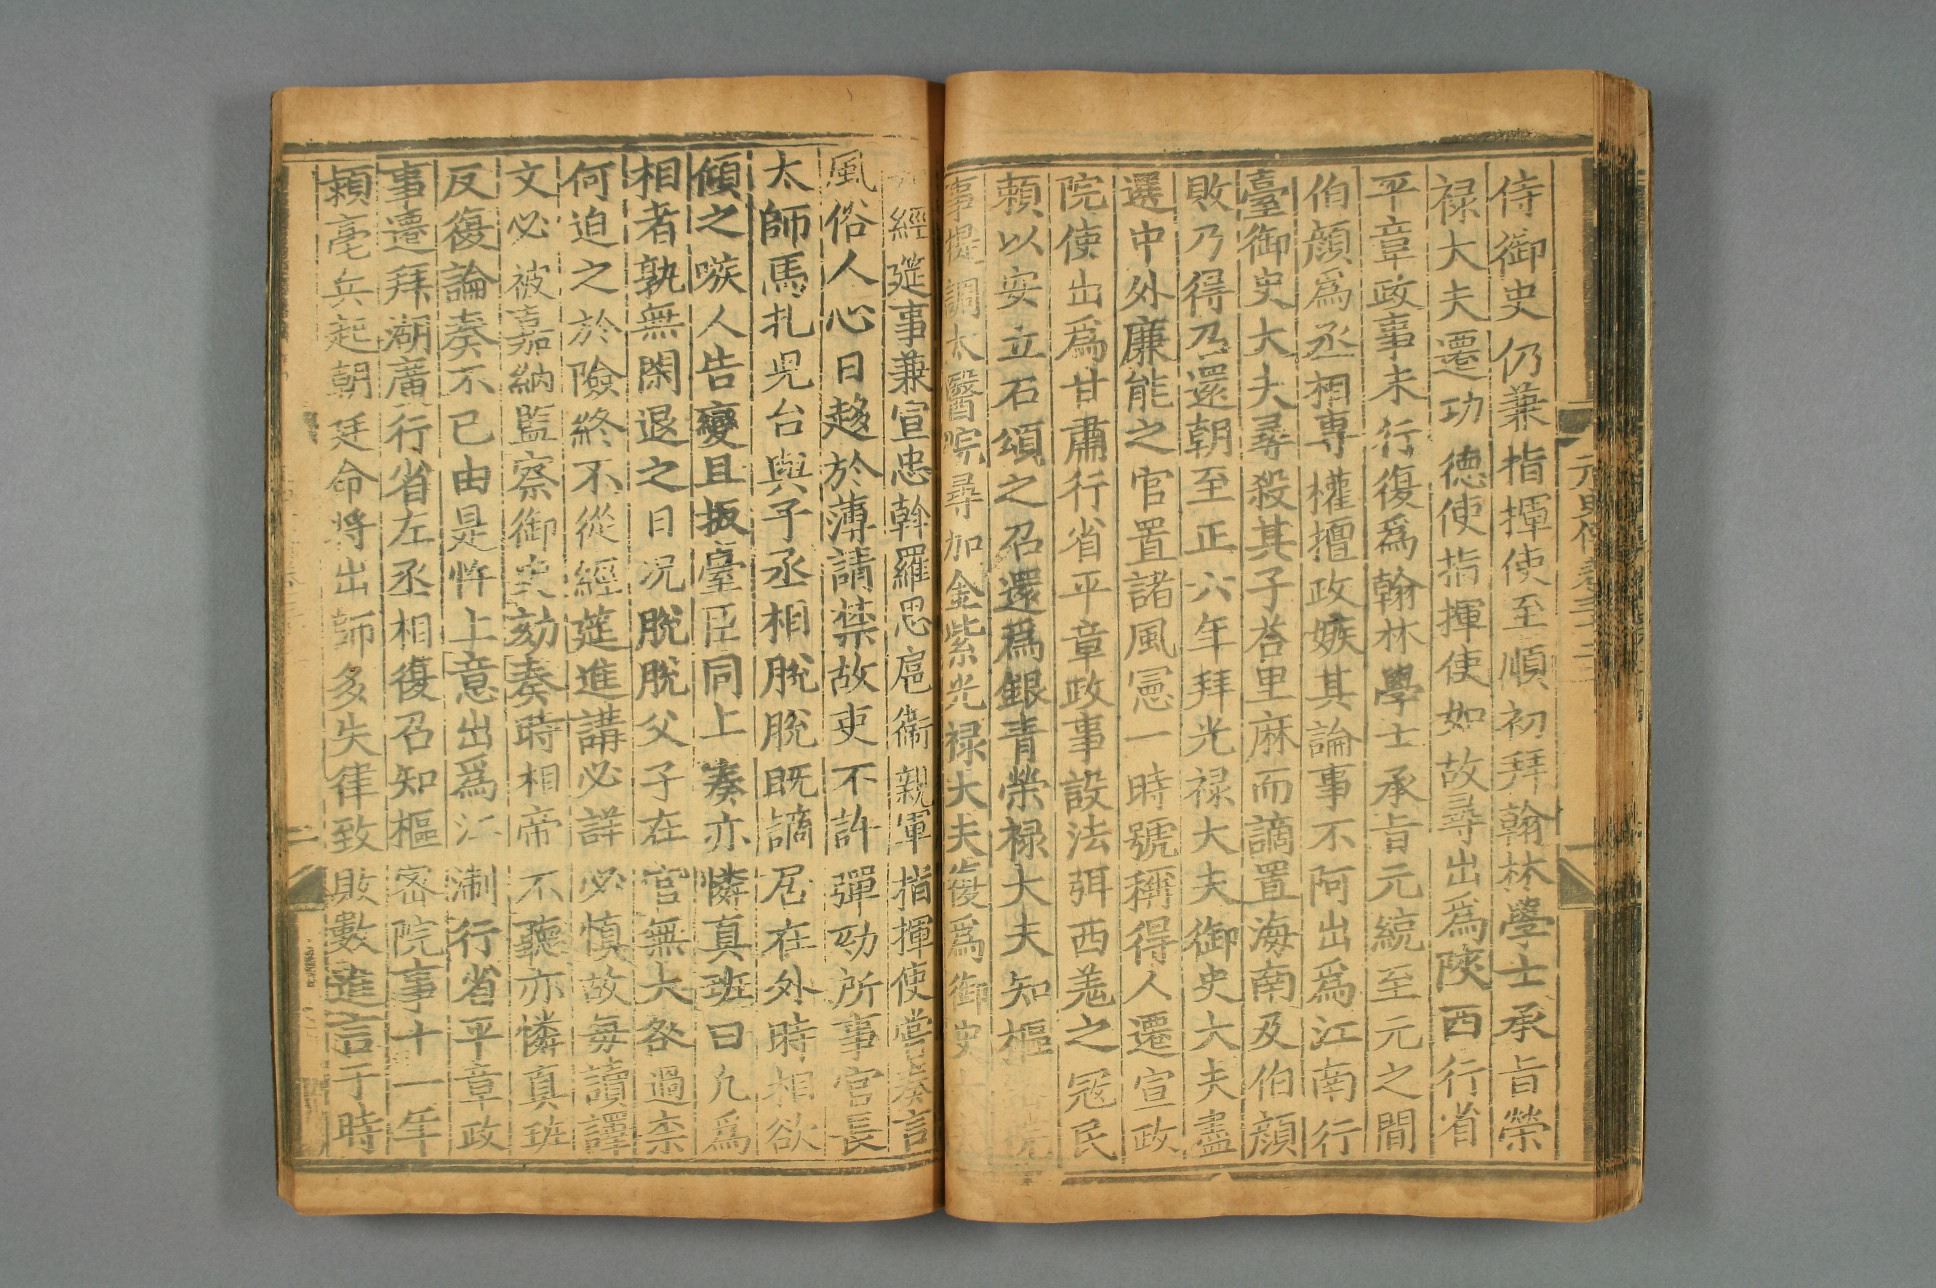 侍御史仍兼指揮使至順初拜翰林學士承旨榮
祿大夫遷功德使指揮使如故尋出爲陝西行省
平章政事未行復爲翰林學士承旨元統至元之間
伯顔爲丞相專權擅政嫉其論事不阿出爲江南行
臺御史大夫尋殺其子荅里麻而謫置海南及伯顔
敗乃得召還朝至正六年拜光禄大夫御史大夫盡
選中外廉能之官置諸風憲一時號稱得人遷宣政
院使出爲甘肅行省平章政事設法弭西羗之冦民
頼以安立石頌之召還爲銀青榮禄大夫知樞密院
事提調太醫院尋加金紫光禄大夫復爲御史
經筵事兼宣忠斡羅思扈衞親軍指揮使嘗奏言
風俗人心日趍於薄請禁故吏不許彈劾所事官長
太師馬扎兒台與子丞相脫脫既謫居在外時相欲
傾之嗾人告變且扳臺臣同上奏亦憐真班曰凡爲
相者孰無閑退之日况脫脫父子在官無大咎過柰
何迫之於險終不從經筵進講必詳必慎故每讀譯
文必被嘉納監察御史劾奏時相帝不聽亦憐真班
反復論奏不已由是忤上意出爲江淛行省平章政
事遷拜湖廣行省左丞相復召知樞密院事十一年
潁亳兵起朝廷命將出師多失律致敗數進言于時
元史傳卷三十二
二